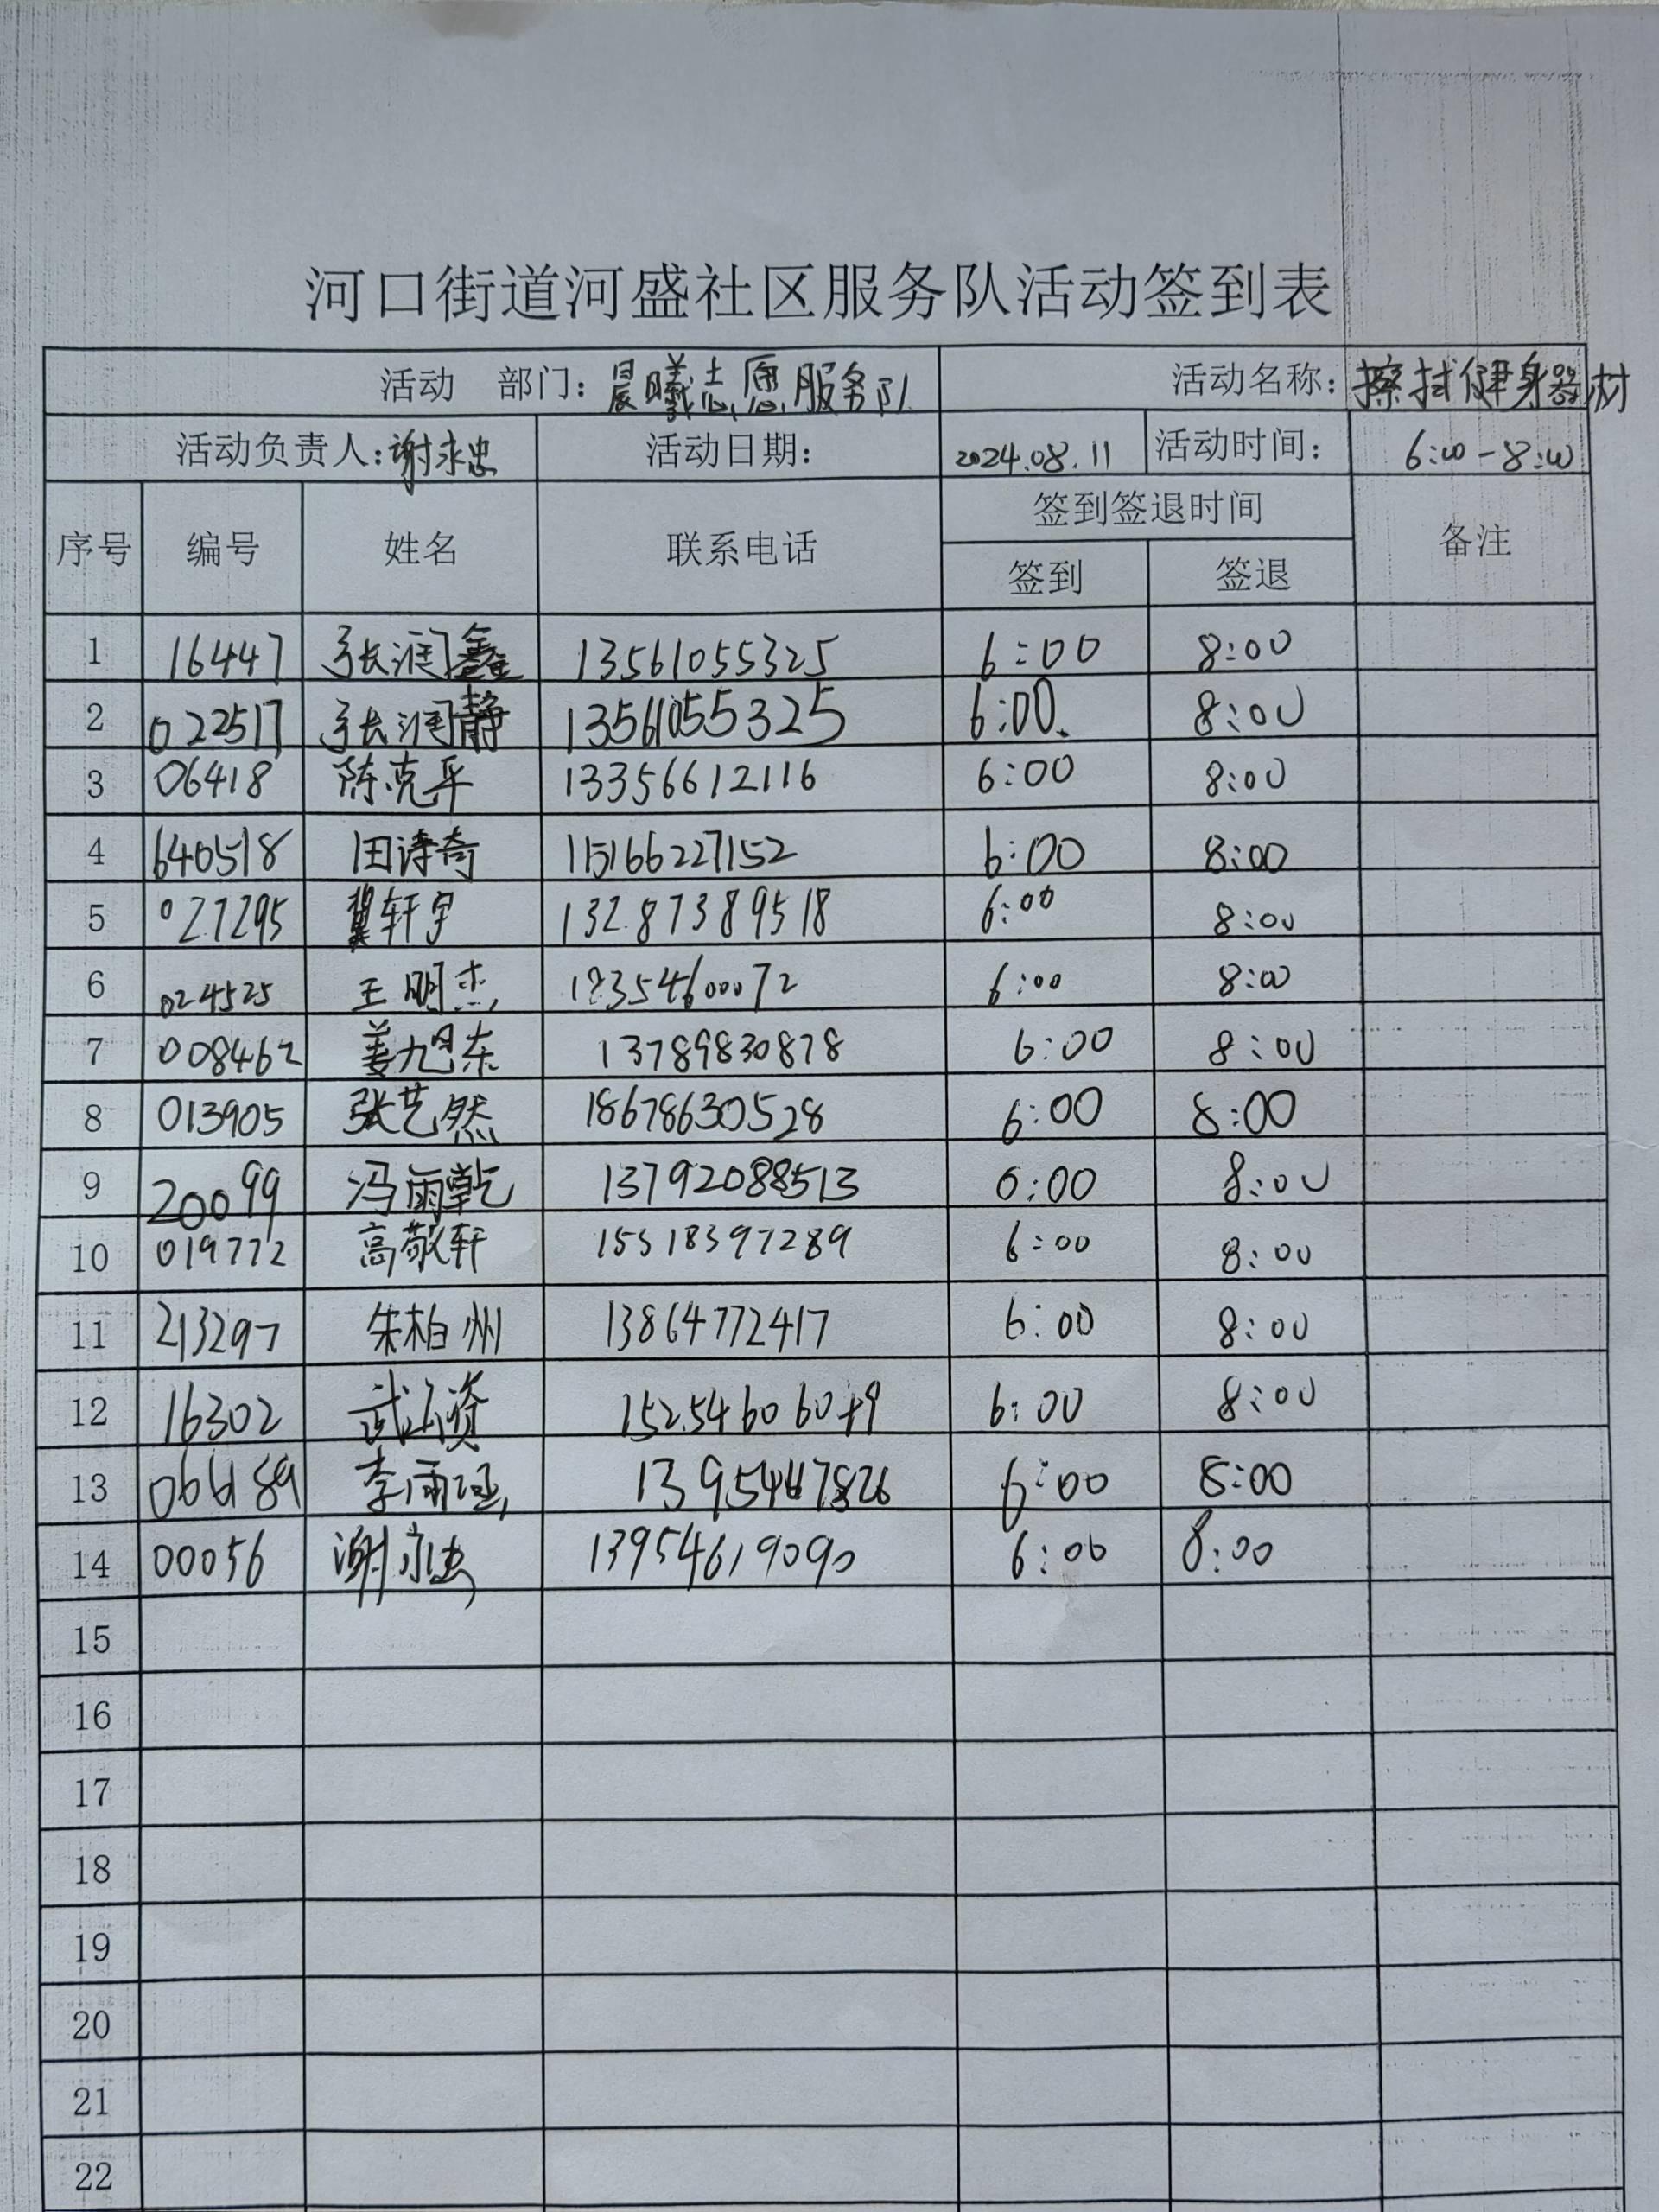 河口街道河盛社区服务队活动签到表
活动 部门：晨曦志愿服务队 活动名称：擦拭健身器材
活动负责人：谢永忠 活动日期： 2024.08.11 活动时间： 6:00-8:00
序号 编号 姓名 联系电话 签到签退时间 备注
签到 签退
1 16447 张润鑫 13561055325 6:00 8:00
2 022517 张润静 13561055325 6:00. 8:00
3 06418 陈克平 13356612116 6:00 8:00
4 640518 田诗奇 15166227152 6:00 8:00
5 027295 冀轩宇 13287389518 6:00 8:00
6 024525 王明杰 18354600072 6:00 8:00
7 008462 姜旭东 13789830878 6:00 8:00
8 013905 张艺然 18678630528 6:00 8:00
9 20099 冯雨乾 13792088513 6:00 8:00
10 019772 高敬轩 15318397289 6:00 8:00
11 213297 朱柏州 13864772417 6:00 8:00
12 16302 6:00 8:00
13 李雨涵 6:00 8:00
14 00056 谢永忠 13954619090 6:00 8:00
15
16
17
18
19
20
21
22